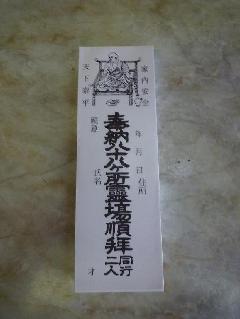 家内安全
天下泰平
年 月 日
住所
奉納八十八ヶ所霊場順拝
同行二人
願意
氏名
才